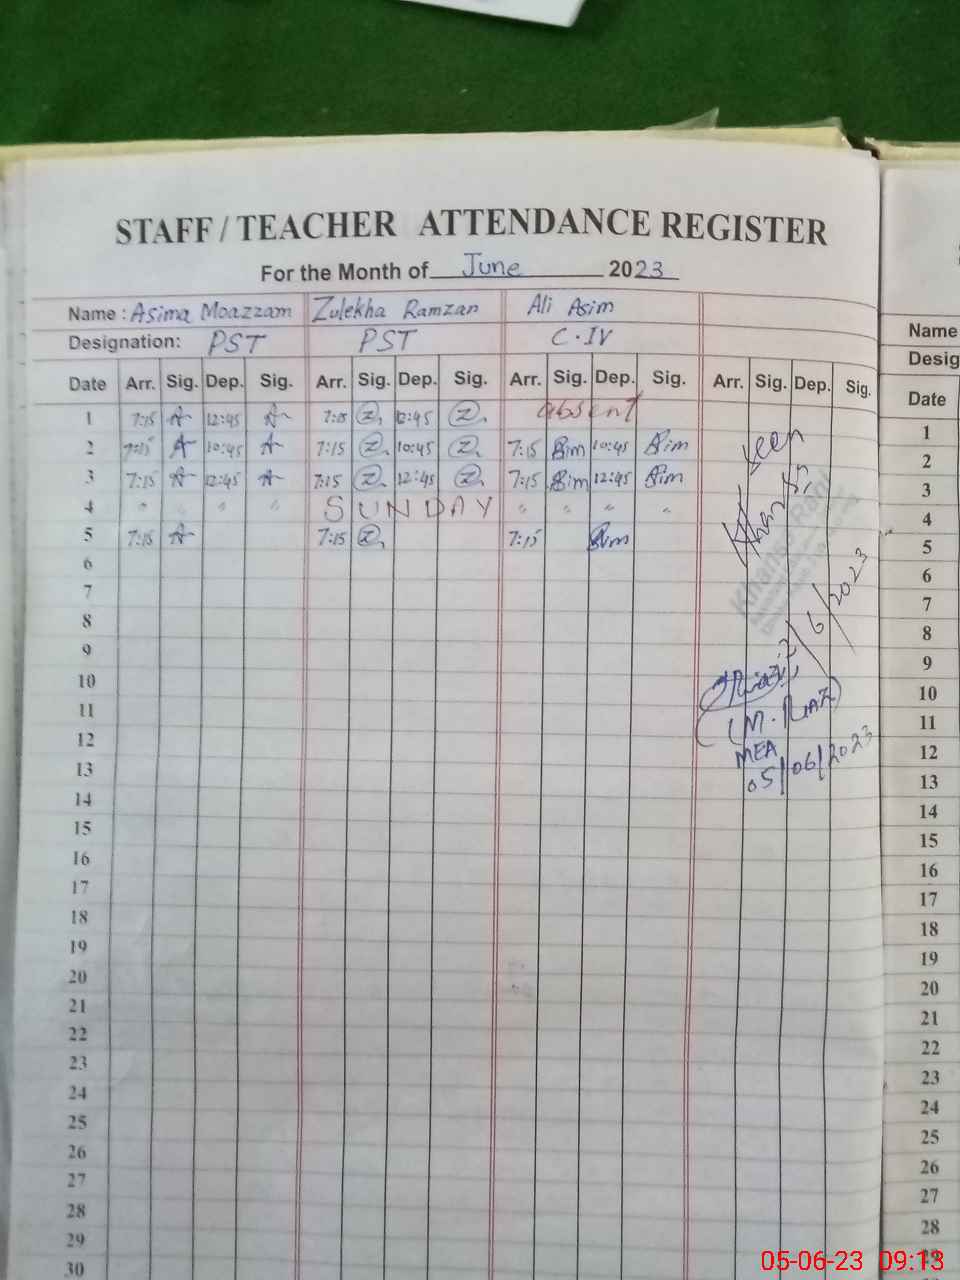 STAFF / TEACHER ATTENDANCE REGISTER
For the Month of June 2023
Name : Asima Moazzam Zulekha Ramzan Ali Asim
Designation: PST PST C.IV
Date Arr. Sig. Dep. Sig. Arr. Sig. Dep. Sig. Arr. Sig. Dep. Sig. Arr. Sig. Dep. Sig.
1 7:15 A 12:45 A 7:15 Z 12:45 Z absent
2 7:15 A 10:45 A 7:15 Z 10:45 Z 7:15 Sim 10:45 Sim
3 7:15 A 12:45 A 7:15 Z 12:45 Z 7:15 Sim 12:45 Sim
4 " " " " SUNDAY " " " "
5 7:15 A 7:15 Z 7:15 Sim
6
7
8
9
10
11
12
13
14
15
16
17
18
19
20
21
22
23
24
25
26
27
28
29
30
seen
2/6/2023
(M. RIAZ)
MEA
05/06/2023
Name
Desig
Date
1
2
3
4
5
6
7
8
9
10
11
12
13
14
15
16
17
18
19
20
21
22
23
24
25
26
27
28
29
05-06-23 09:13